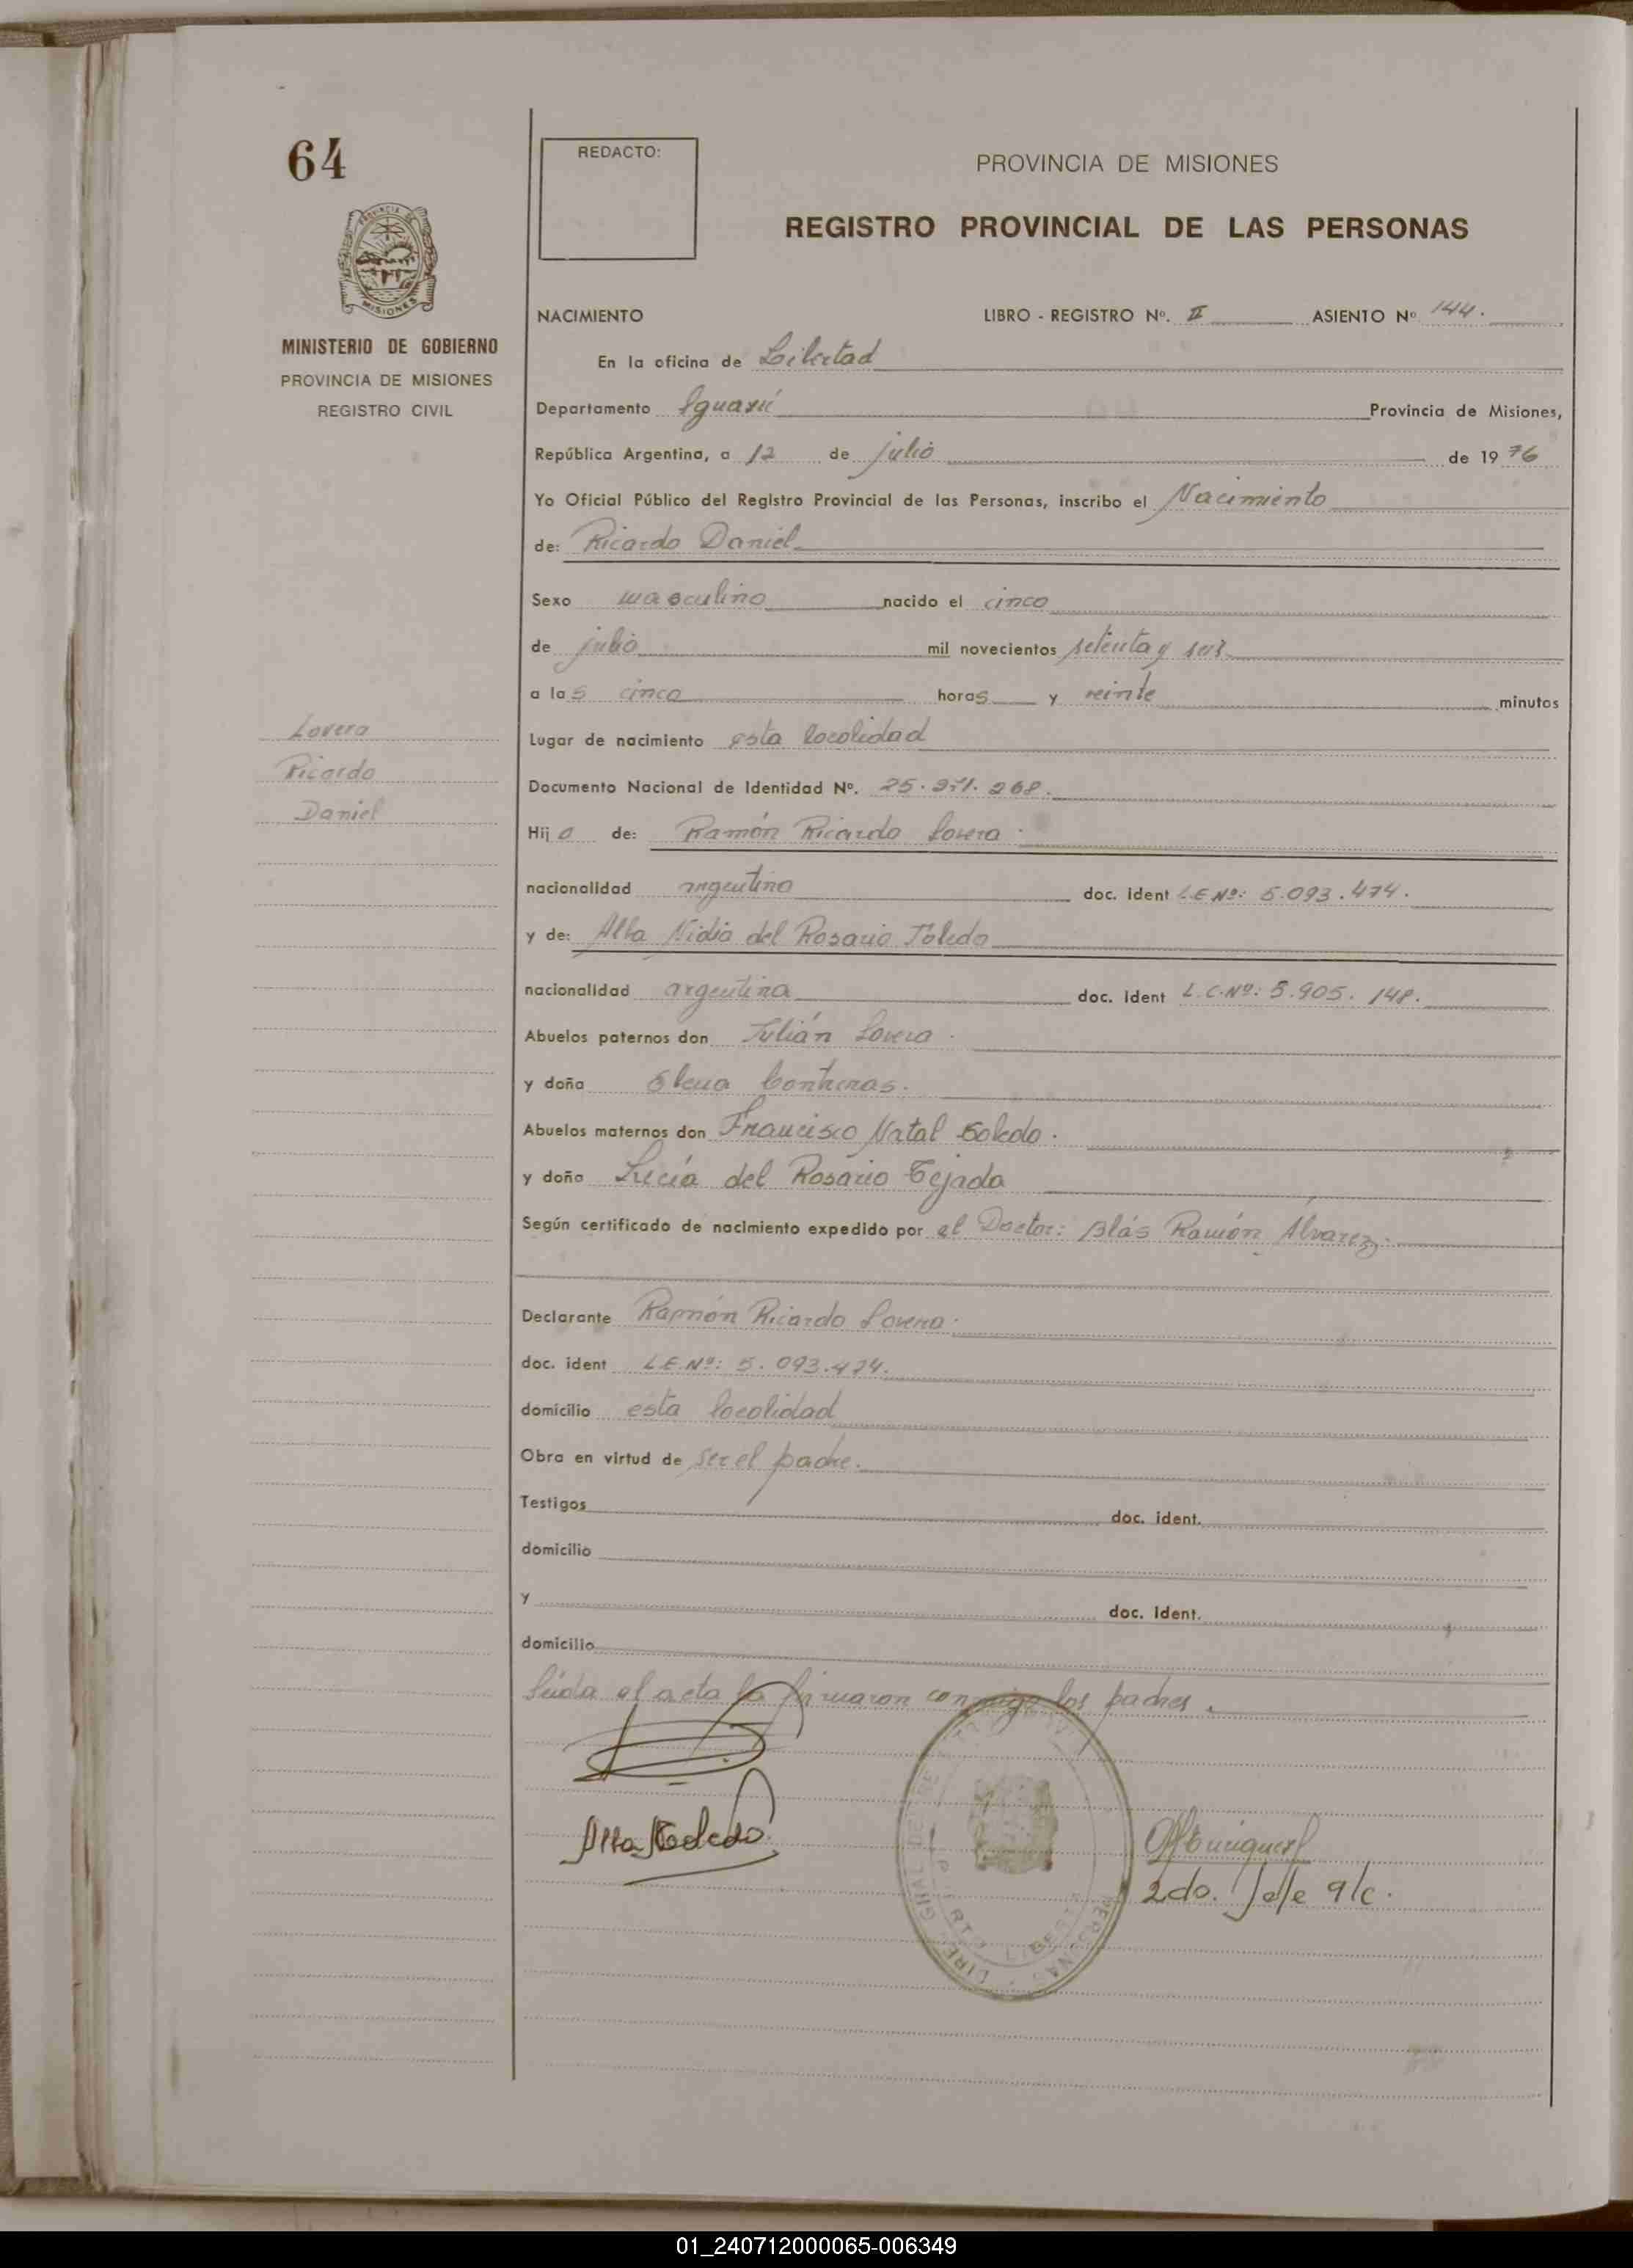 64
REDACTO:
PROVINCIA DE MISIONES
REGISTRO PROVINCIAL DE LAS PERSONAS
PROVINCIA DE
MISIONES
MINISTERIO DE GOBIERNO
PROVINCIA DE MISIONES
REGISTRO CIVIL
NACIMIENTO LIBRO - REGISTRO Nº. II ASIENTO Nº 144.
En la oficina de Libertad
Departamento Iguazú Provincia de Misiones,
República Argentina, a 12 de julio de 1976
Yo Oficial Público del Registro Provincial de las Personas, inscribo el Nacimiento
de: Ricardo Daniel
Sexo masculino nacido el cinco
de julio mil novecientos setenta y seis
a las cinco horas y veinte minutos
Lovera
Ricardo
Daniel
Lugar de nacimiento esta localidad
Documento Nacional de Identidad Nº. 25. 268.
Hijo de: Ramón Ricardo Lovera.
nacionalidad argentina doc. ident L.E Nº: 5.093.474.
y de: Alba Nidia del Rosario Toledo
nacionalidad argentina doc. ident L.C.Nº: 5.905.148.
Abuelos paternos don Julián Lovera.
y doña Elena Contreras.
Abuelos maternos don Francisco Natal Toledo.
y doña Lucía del Rosario Tejada
Según certificado de nacimiento expedido por el Doctor: Blás Ramón Álvarez.
Declarante Ramón Ricardo Lovera.
doc. ident L.E.Nº: 5.093.474.
domicilio esta localidad
Obra en virtud de ser el padre.
Testigos doc. ident.
domicilio
y doc. ident.
domicilio
Leída el acta la firmaron conmigo los padres.
Alba Toledo
2do. Jefe a/c.
01_240712000065-006349